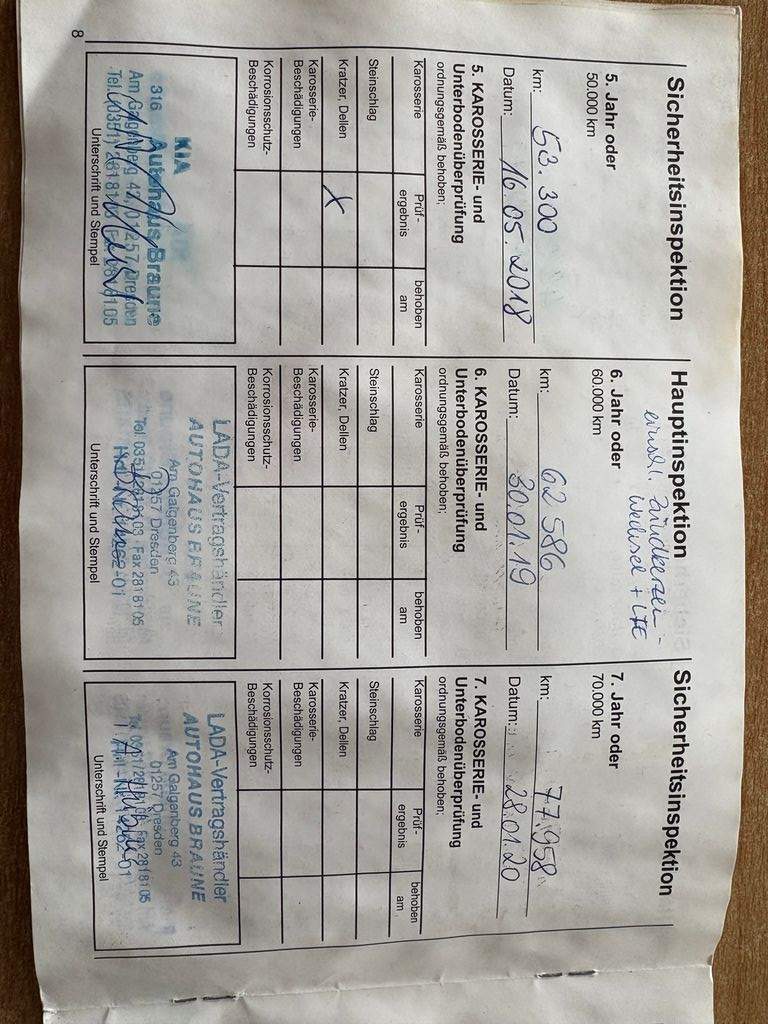 Sicherheitsinspektion
5. Jahr oder
50.000 km
km: 53.300
Datum: 16.05.2018
5. KAROSSERIE- und
Unterbodenüberprüfung
ordnungsgemäß behoben;
Karosserie Prüf-ergebnis behoben am
Steinschlag
Kratzer, Dellen X
Karosserie-
Beschädigungen
Korrosionsschutz-
Beschädigungen
KIA
316 Autohaus Braune
Am Galgenberg 43, 01257 Dresden
Unterschrift und Stempel
8
Hauptinspektion
einschl. Zündkerzen-
Wechsel +
6. Jahr oder
60.000 km
km: 62 586
Datum: 30.01.19
6. KAROSSERIE- und
Unterbodenüberprüfung
ordnungsgemäß behoben;
Karosserie Prüf-ergebnis behoben am
Steinschlag
Kratzer, Dellen
Karosserie-
Beschädigungen
Korrosionsschutz-
Beschädigungen
LADA-Vertragshändler
AUTOHAUS BRAUNE
Am Galgenberg 43
01257 Dresden
Fax 2818105
Unterschrift und Stempel
Sicherheitsinspektion
7. Jahr oder
70.000 km
km: 77.958
Datum: 28.01.20
7. KAROSSERIE- und
Unterbodenüberprüfung
ordnungsgemäß behoben;
Karosserie Prüf-ergebnis behoben am
Steinschlag
Kratzer, Dellen
Karosserie-
Beschädigungen
Korrosionsschutz-
Beschädigungen
LADA-Vertragshändler
AUTOHAUS BRAUNE
Am Galgenberg 43
01257 Dresden
Fax 2818105
Unterschrift und Stempel